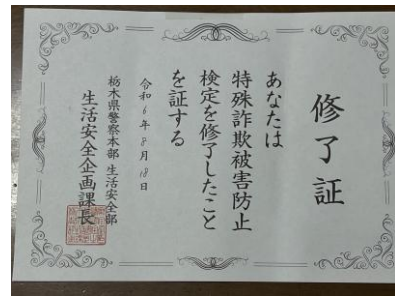 修了証
あなたは
特殊詐欺被害防止
検定を修了したこと
を証する
令和6年8月18日
栃木県警察本部 生活安全部
生活安全企画課長